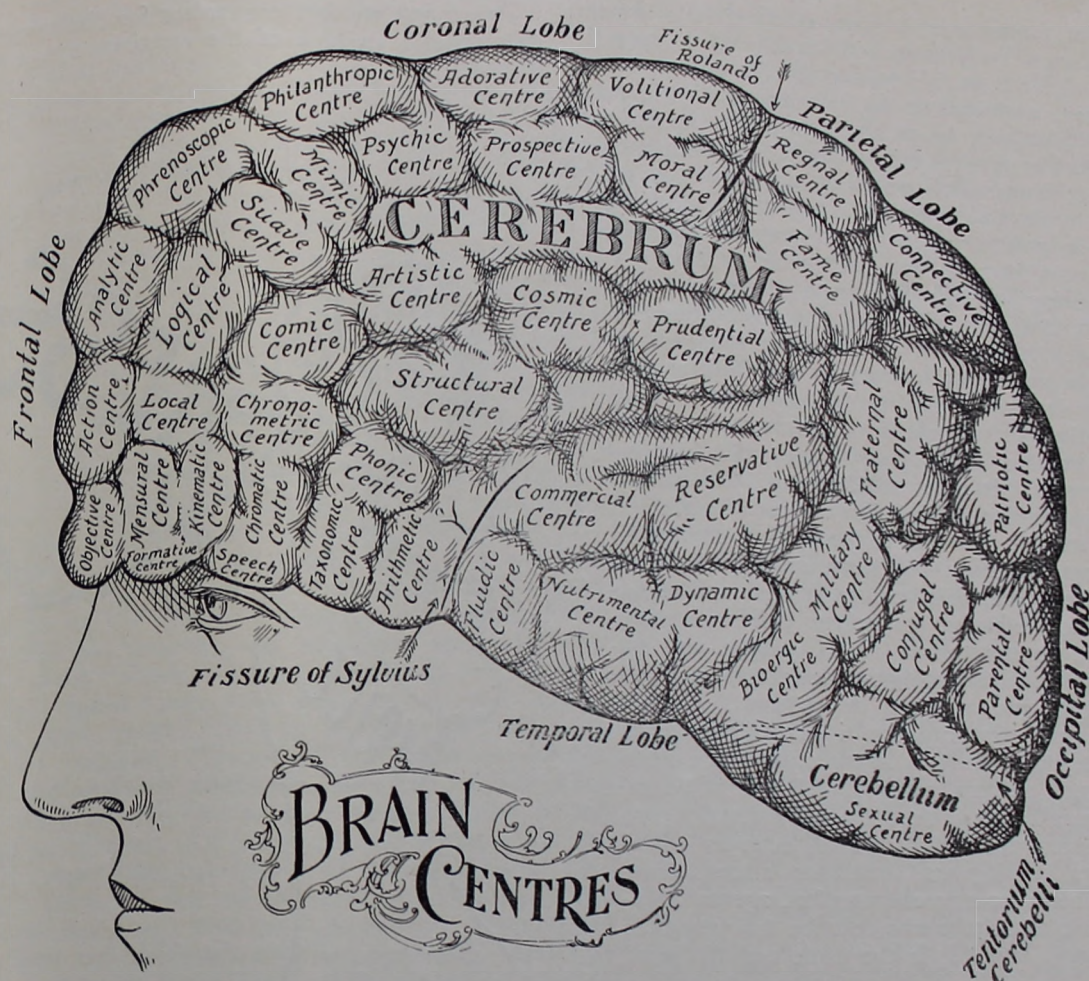 Coronal Lobe
Fissure of
Rolando
Parietal Lobe
Frontal Lobe
Philanthropic
Centre
Adorative
Centre
Volitional
Centre
Phrenoscopic
Centre
Mimic
Centre
Psychic
Centre
Prospective
Centre
Moral
Centre
Regnal
Centre
Suave
Centre
CEREBRUM
Fame
Centre
Connective
Centre
Analytic
Centre
Logical
Centre
Artistic
Centre
Cosmic
Centre
Prudential
Centre
Comic
Centre
Structural
Centre
Action
Centre
Local
Centre
Chrono-
metric
Centre
Fraternal
Centre
Patriotic
Centre
Objective
Centre
Mensural
Centre
Kinematic
Centre
Chromatic
Centre
Phonic
Centre
Commercial
Centre
Reservative
Centre
Formative
Centre
Speech
Centre
Taxonomic
Centre
Arithmetic
Centre
Fluidic
Centre
Nutrimental
Centre
Dynamic
Centre
Military
Centre
Bioergic
Centre
Conjugal
Centre
Parental
Centre
Occipital Lobe
Fissure of Sylvius
Temporal Lobe
Cerebellum
Sexual
Centre
BRAIN
CENTRES
Tentorium
Cerebelli